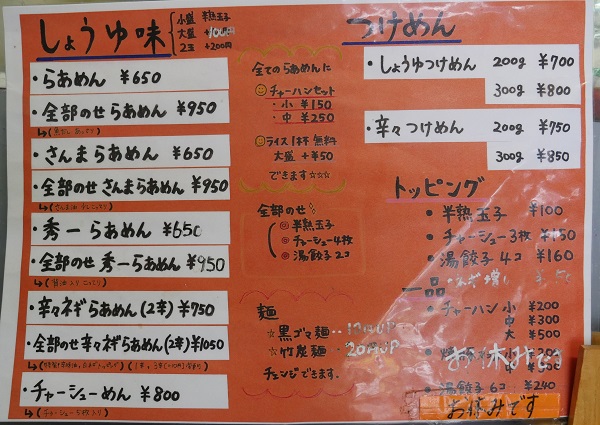 しょうゆ味
小盛 半熟玉子
大盛 +100円
2玉 +200円
・らあめん ¥650
・全部のせ らあめん ¥950
・さんまらあめん ¥650
・全部のせ さんまらあめん ¥950
・秀一らあめん ¥650
・全部のせ 秀一らあめん ¥950
・辛々ネギらあめん(2辛) ¥750
・全部のせ辛々ネギらあめん(2辛) ¥1050
・チャーシューめん ¥800
(チャーシュー5枚入り)
全ての らあめんに
チャーハンセット
・小 ¥150
・中 ¥250
ライス1杯 無料
大盛 +¥50
できます☆☆☆
全部のせ
◎半熟玉子
◎チャーシュー4枚
◎湯餃子 2コ
麺
☆黒ゴマ麺
☆竹炭麺
チェンジできます。
つけめん
・しょうゆつけめん 200g ¥700
300g ¥800
・辛々つけめん 200g ¥750
300g ¥850
トッピング
・半熟玉子 ¥100
・チャーシュー3枚 ¥150
・湯餃子 4コ ¥160
一品
・チャーハン 小 ¥200
中 ¥300
大 ¥500
・湯餃子 6コ ¥240
お休みです